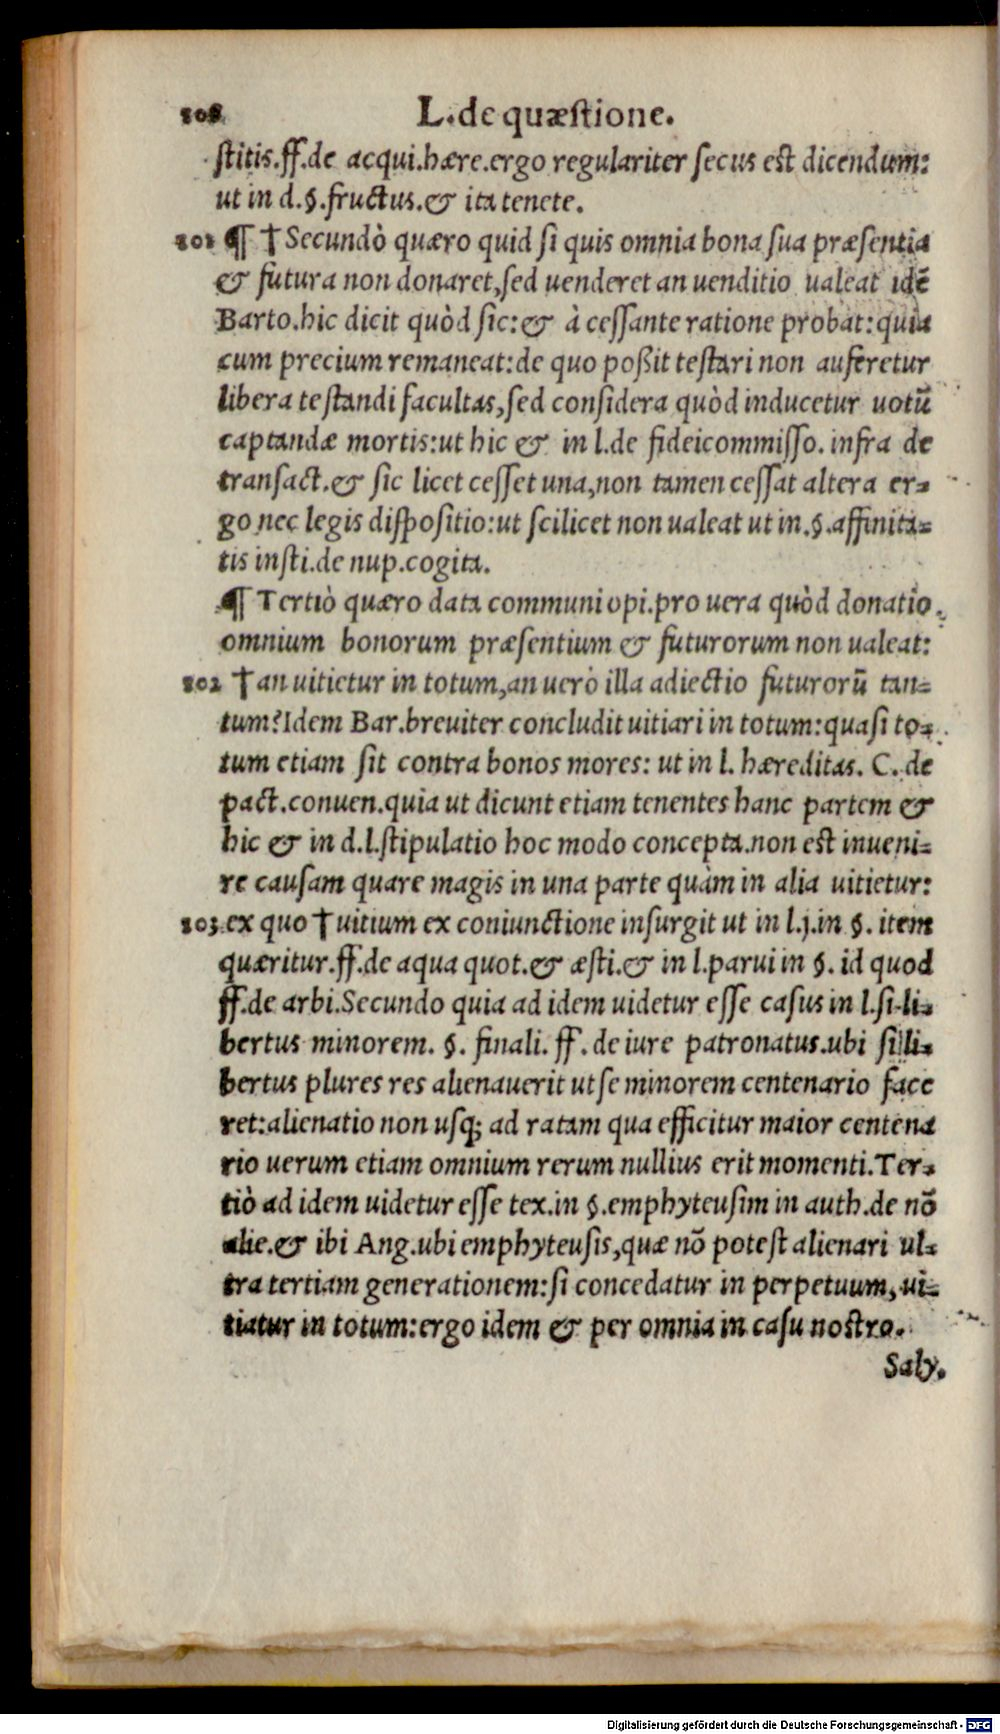 108 L. de quæstione.
stitis.ff.de acqui.hære.ergo regulariter secus est dicendum:
ut in d.§.fructus.& ita tenete.
101 ¶ †Secundò quæro quid si quis omnia bona sua præsentia
& futura non donaret,sed uenderet an uenditio ualeat idē
Barto.hic dicit quòd sic:& à cessante ratione probat:quia
cum precium remaneat:de quo poßit testari non auferetur
libera testandi facultas,sed considera quòd inducetur uotū
captandæ mortis:ut hic & in l.de fideicommisso. infra de
transact.& sic licet cesset una,non tamen cessat altera er-
go nec legis dispositio:ut scilicet non ualeat ut in.§.affinita-
tis insti.de nup.cogita.
¶ Tertiò quæro data communi opi.pro uera quòd donatio
omnium bonorum præsentium & futurorum non ualeat:
102 †an uitietur in totum,an uerò illa adiectio futurorū tan-
tum?Idem Bar.breuiter concludit uitiari in totum:quasi to-
tum etiam sit contra bonos mores: ut in l. hæreditas. C. de
pact.conuen.quia ut dicunt etiam tenentes hanc partem &
hic & in d.l.stipulatio hoc modo concepta.non est inueni-
re causam quare magis in una parte quàm in alia uitietur:
103 ex quo †uitium ex coniunctione insurgit ut in l.j.in §. item
quæritur.ff.de aqua quot.& æsti.& in l.parui in §. id quod
ff.de arbi.Secundo quia ad idem uidetur esse casus in l.si li-
bertus minorem. §. finali. ff. de iure patronatus.ubi si li-
bertus plures res alienauerit ut se minorem centenario face
ret:alienatio non usq; ad ratam qua efficitur maior centena
rio uerum etiam omnium rerum nullius erit momenti.Ter-
tiò ad idem uidetur esse tex.in §.emphyteusim in auth.de nō
alie.& ibi Ang.ubi emphyteusis,quæ nō potest alienari ul-
tra tertiam generationem:si concedatur in perpetuum, ui-
tiatur in totum:ergo idem & per omnia in casu nostro.
Saly.
Digitalisierung gefördert durch die Deutsche Forschungsgemeinschaft - DFG